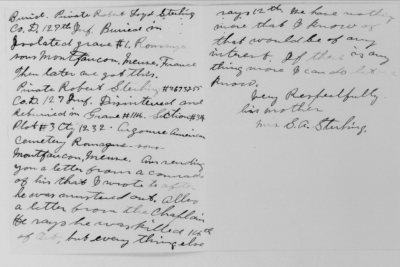 Buried. Private Robert Loyd Sterling
Co. D. 127th Inf. Buried in
Isolated grave #1, Romagne
sous Montfaucon, Meuse, France
Then later we got this.
Private Robert Sterling
Co. D. 127 Inf. Disinterred and
Reburied in Grave #114. Section #34
Plot #3 Cty 1232. Argonne American
Cemetery Romagne sous
Montfaucon, Meuse. Am sending
you a letter from a comrade
of his that I wrote to after
he was mustered out. Also
a letter from the Chaplain
He says he was killed 14th
of Oct, but every thing else
says 12th. We have nothing
more that I know of
that would be of any
interest. If there is any
thing more I can do let me
know.
Very Respectfully
his mother
Mrs S.A. Sterling.